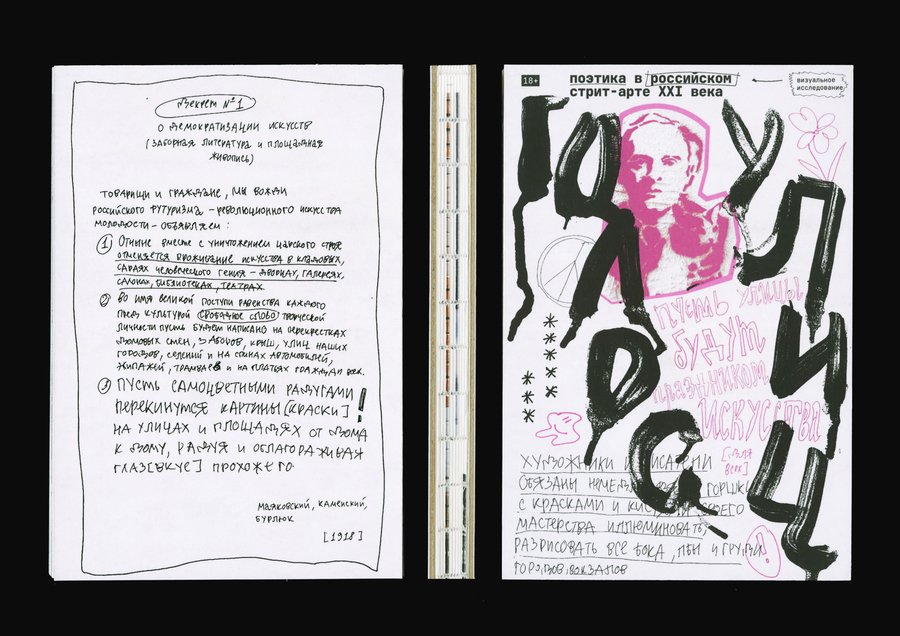 Декрет №1
О демократизации искусств
(заборная литература и площадная
живопись)
Товарищи и граждане, мы вожди
российского футуризма – революционного искусства
молодости – объявляем:
1 Отныне вместе с уничтожением царского строя
отменяется проживание искусства в кладовых,
сараях человеческого гения – дворцах, галереях,
салонах, библиотеках, театрах.
2 Во имя великой поступи равенства каждого
пред культурой свободное слово творческой
личности пусть будет написано на перекрестках
домовых стен, заборов, крыш, улиц наших
городов, селений и на спинах автомобилей,
экипажей, трамваев и на платьях граждан всех.
3 Пусть самоцветными радугами
перекинутся картины [краски]!
на улицах и площадях от дома
к дому, радуя и облагораживая
глаз [вкус] прохожего
Маяковский, Каменский,
Бурлюк
[1918]
18+
поэтика в российском
стрит-арте XXI века
визуальное
исследование
ГОЛОС
УЛИЦ
пусть улицы
будут
праздником
искусства
[для
всех]
Художники и писатели
обязаны горшки
с красками и своего
мастерства иллюминовать,
разрисовать все бока, лбы и груди
городов, вокзалов